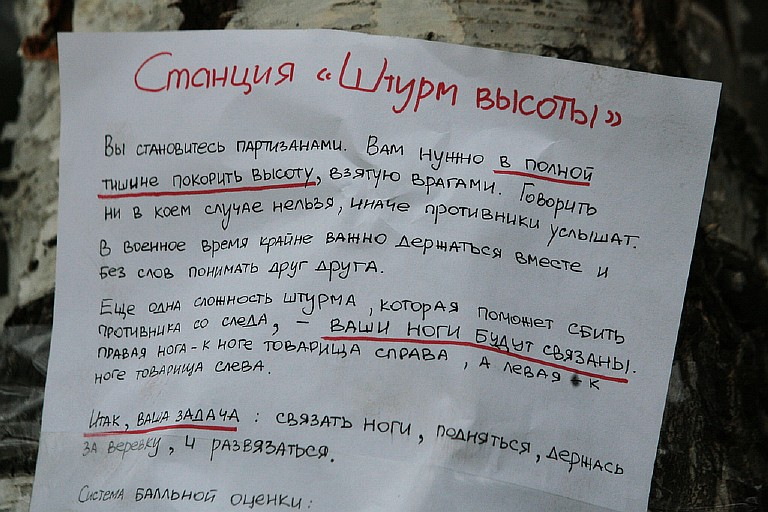 Станция «Штурм высоты»
Вы становитесь партизанами. Вам нужно в полной
тишине покорить высоту, взятую врагами. Говорить
ни в коем случае нельзя, иначе противники услышат.
В военное время крайне важно держаться вместе и
без слов понимать друг друга.
Еще одна сложность штурма, которая поможет сбить
противника со следа, – ваши ноги будут связаны.
правая нога - к ноге товарища справа, а левая - к
ноге товарища слева.
Итак, ваша задача : связать ноги, подняться, держась
за веревку, и развязаться.
Система балльной оценки: